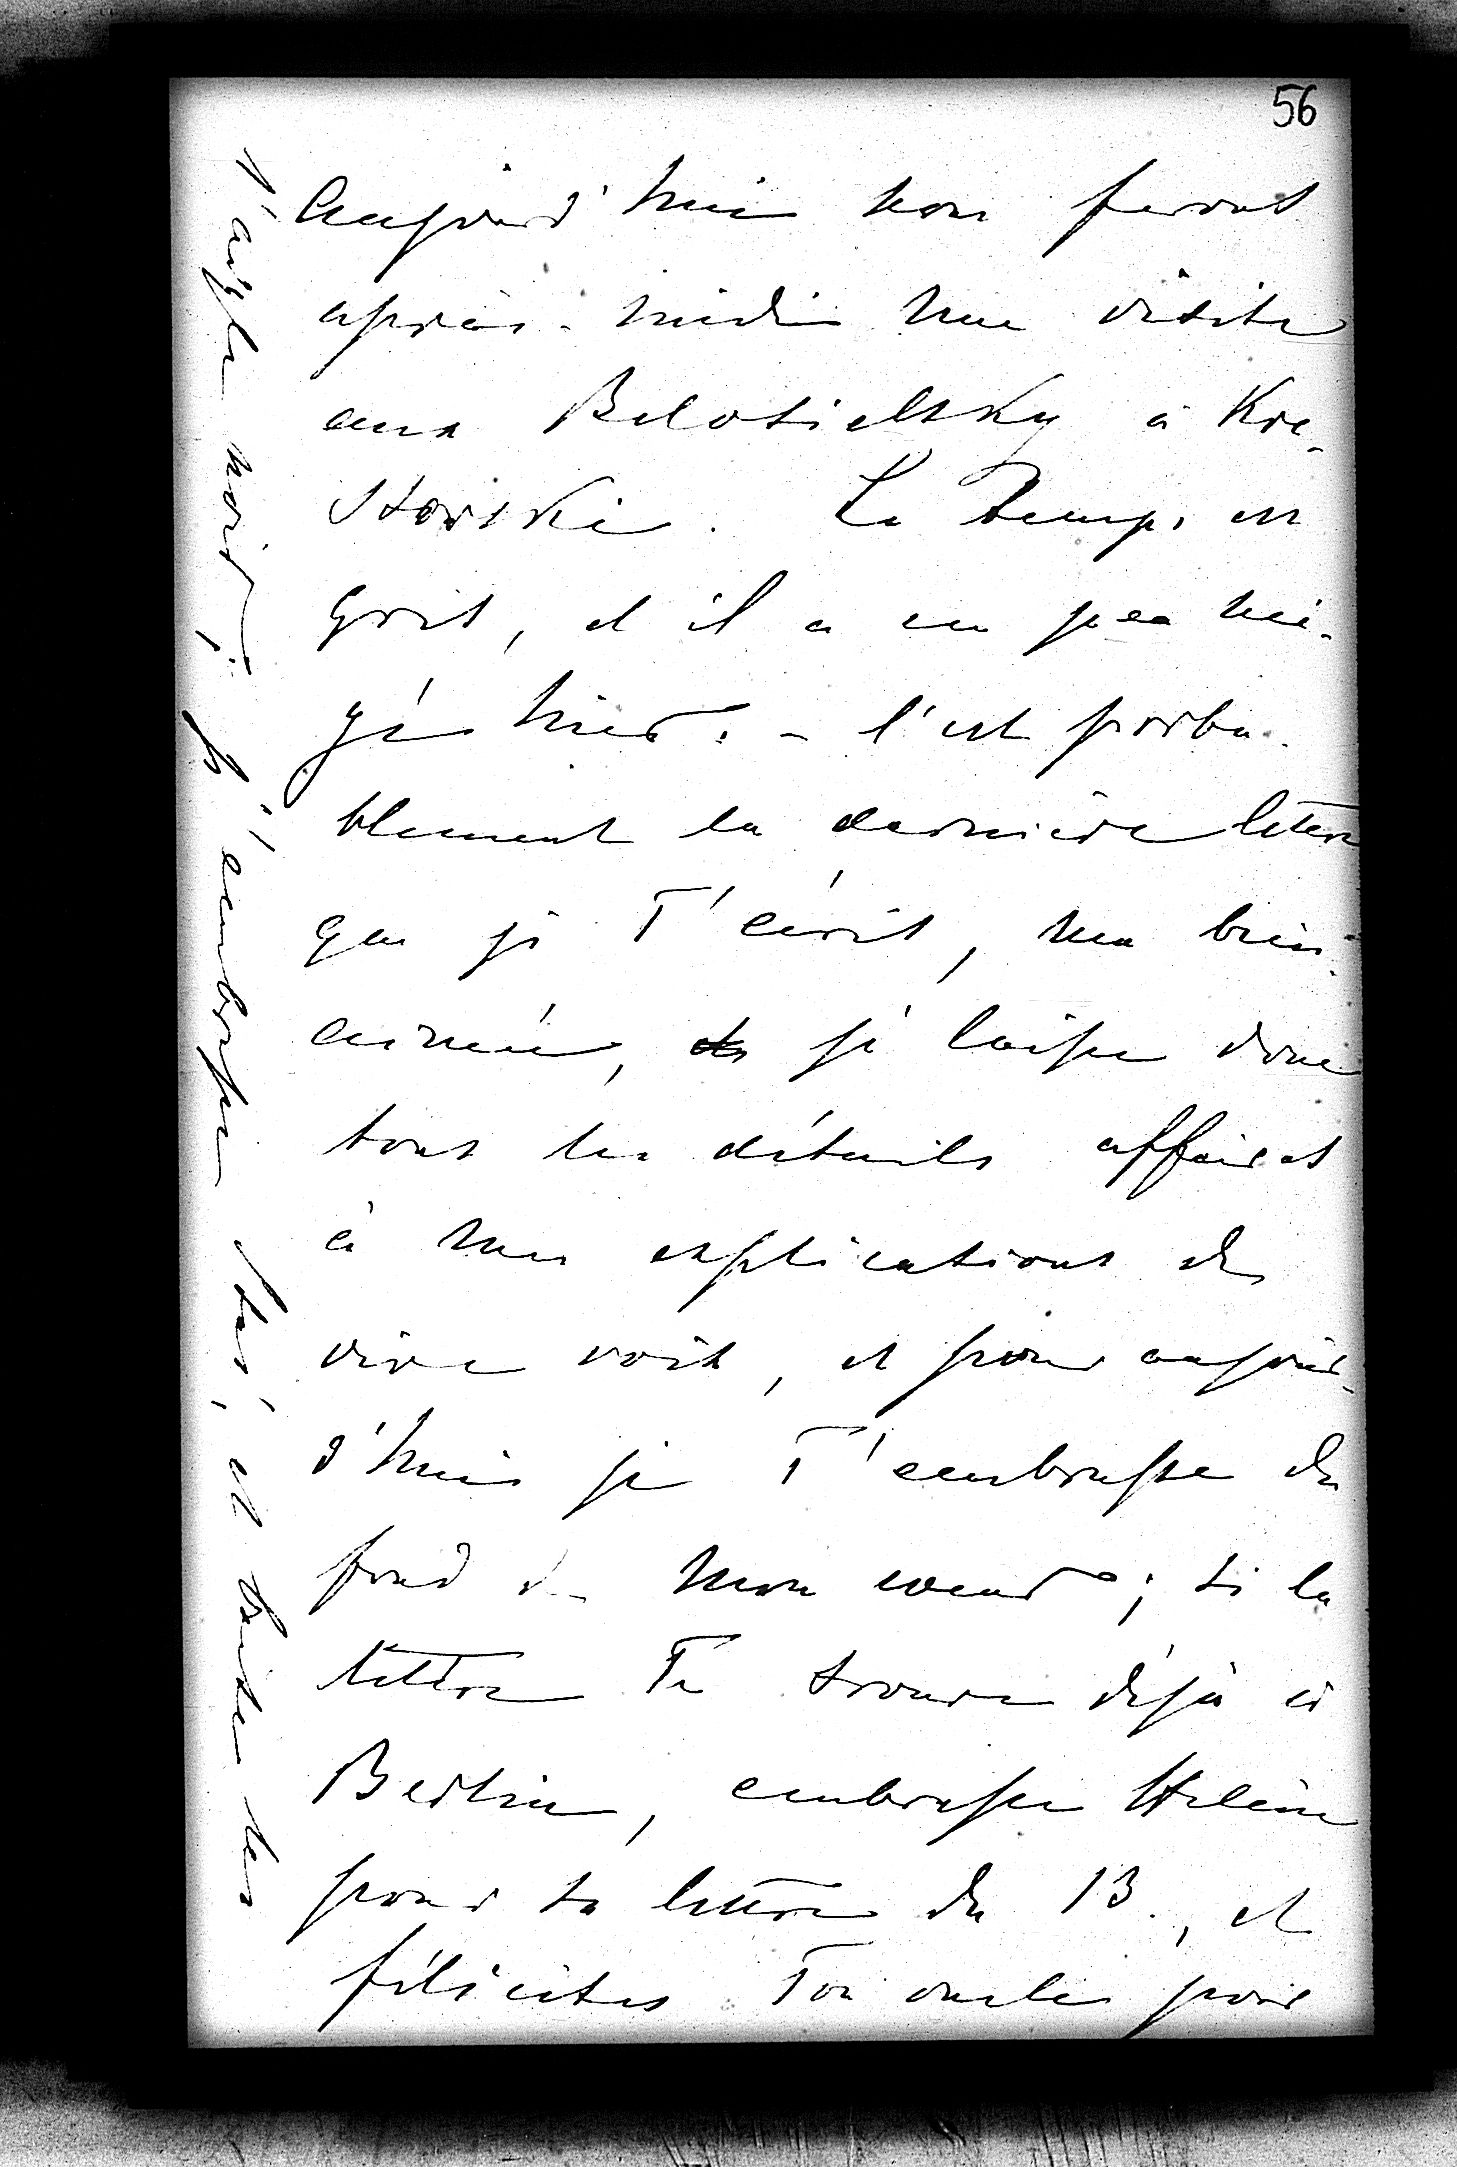 56
Aujourd'hui nous ferons
après-midi une visite
aux Belosielsky à Kre-
stowski. Le temps est
gris, et il a un peu nei-
gé hier. – C'est proba-
blement la dernière lettre
que je T'écris, ma bien
aimée, je laisse donc
tous les détails affaires
à mes explications de
vive voix, et pour aujour-
d'hui je T'embrasse du
fond de mon coeur; si la
lettre Te trouve déjà à
Berlin, embrasse Hélène
pour sa lettre du 13., et
félicites Ton oncle pour
l'aigle noir; j'embrasse Stas, et baise les